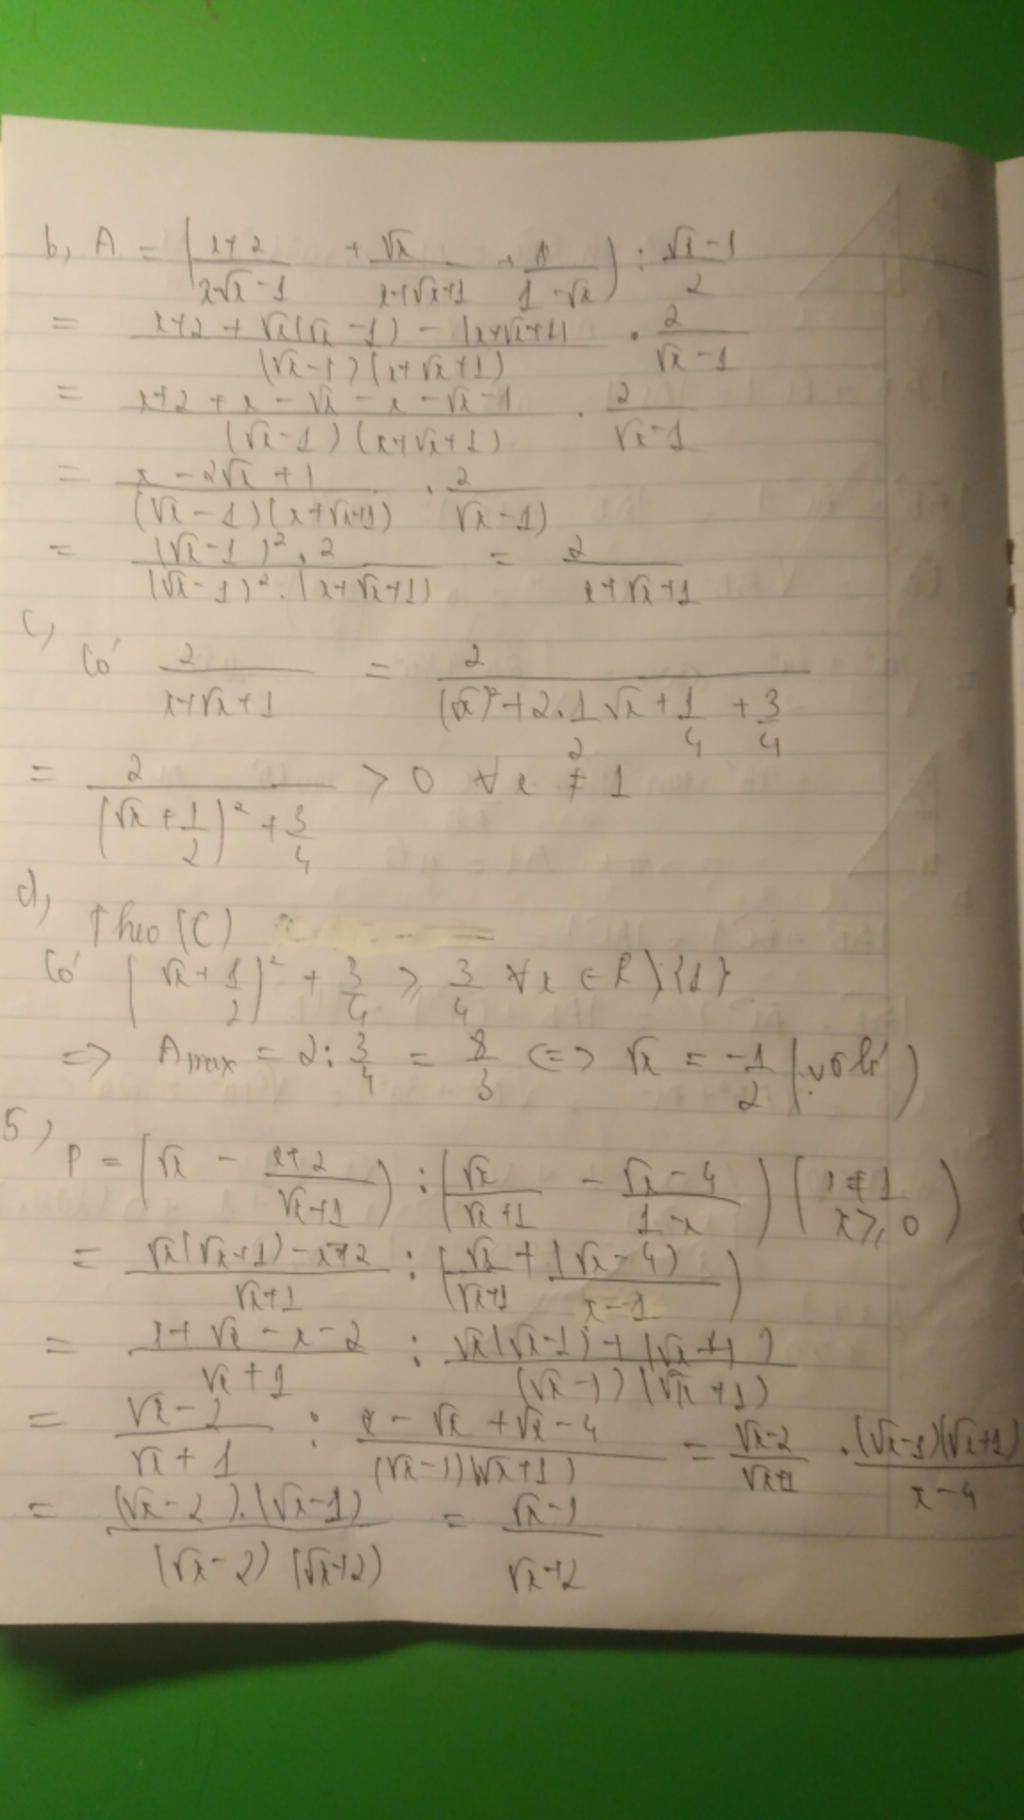 b, A = (x+2 / x√x-1 + √x / x+√x+1 + 1 / 1-√x) : √x-1 / 2
= x+2+√x(√x-1)-(x+√x+1) / (√x-1)(x+√x+1) . 2 / √x-1
= x+2+x-√x-x-√x-1 / (√x-1)(x+√x+1) . 2 / √x-1
= x-2√x+1 / (√x-1)(x+√x+1) . 2 / √x-1)
= (√x-1)².2 / (√x-1)².(x+√x+1) = 2 / x+√x+1
c,
Có 2 / x+√x+1 = 2 / (√x)²+2.1/2 √x+1/4+3/4
= 2 / (√x+1/2)²+3/4 > 0 ∀x ≠ 1
d,
Theo (C)
Có (√x+1/2)²+3/4 ≥ 3/4 ∀x ∈ R\{1}
=> Amax = 2:3/4 = 8/3 <=> √x = -1/2 (vô lí)
5,
P = (√x - x+2 / √x+1) : (√x / √x+1 - √x-4 / 1-x) (x≠1 x≥0)
= √x(√x+1)-x+2 / √x+1 : (√x / √x+1 + (√x-4) / x-1)
= x+√x-x-2 / √x+1 : √x(√x-1)+(√x-4) / (√x-1)(√x+1)
= √x-2 / √x+1 : x-√x+√x-4 / (√x-1)(√x+1) = √x-2 / √x+1 . (√x-1)(√x+1) / x-4
= (√x-2).(√x-1) / (√x-2)(√x+2) = √x-1 / √x+2